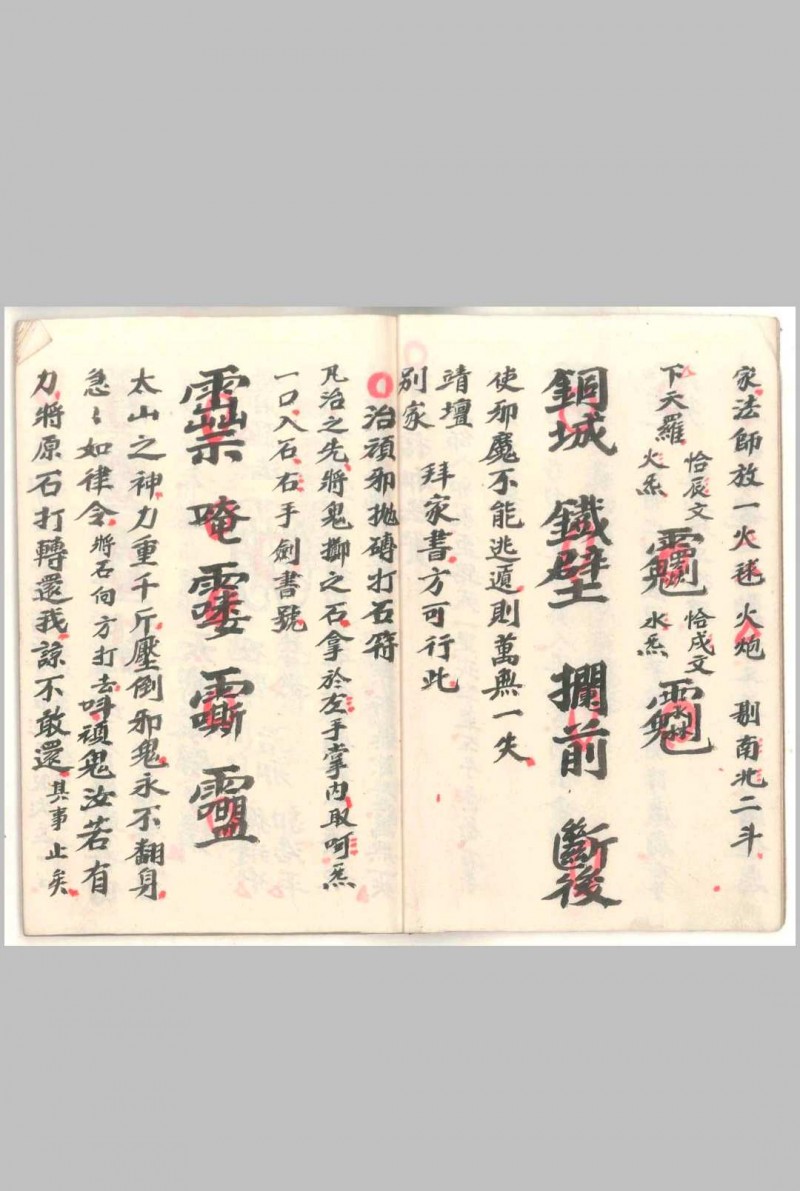 家法師放一火毬火炮 剔南北二斗
下天羅 恰辰文 火炁 恰戌文 水炁
銅城 鐵壁 攔前 斷後
使邪魔不能逃遁則萬無一失
靖壇 拜家書方可行此
別家
治頑邪拋磚打石符
凡治之先將鬼擲之石拿於左手掌內取呵炁
一口入石右手劍書號
唵
太山之神力重千斤壓倒邪鬼永不翻身
急〻如律令 將石向方打去 頑鬼汝若有
力將原石打轉還我諒不敢還 其事止矣